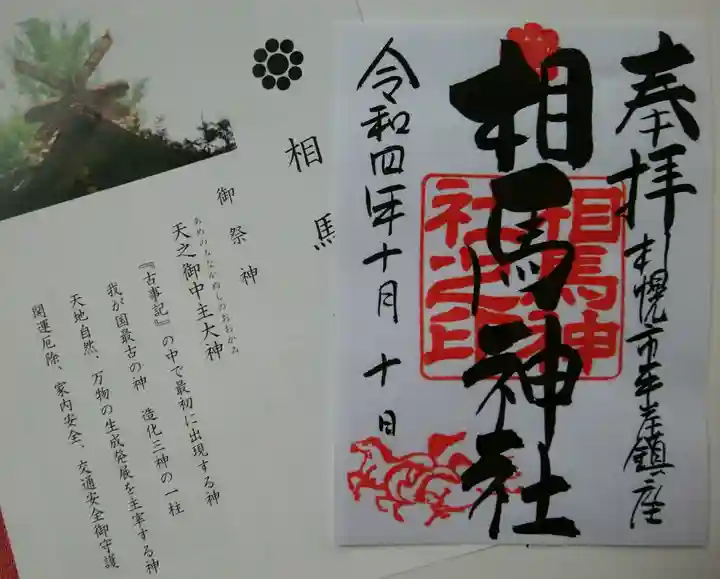 奉拝
札幌市平岸鎮座
相馬神社
相馬神
社之印
令和四年十月十日
相馬
御祭神
あめのみなかぬしのおおかみ
天之御中主大神
『古事記』の中で最初に出現する神
我が国最古の神 造化三神の一柱
天地自然、万物の生成発展を主宰する神
開運厄除、家内安全、交通安全御守護